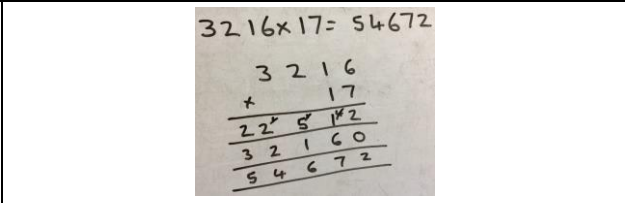 3216×17= 54672
3 2 1 6
× 1 7
2 2 5 1 2
3 2 1 6 0
5 4 6 7 2